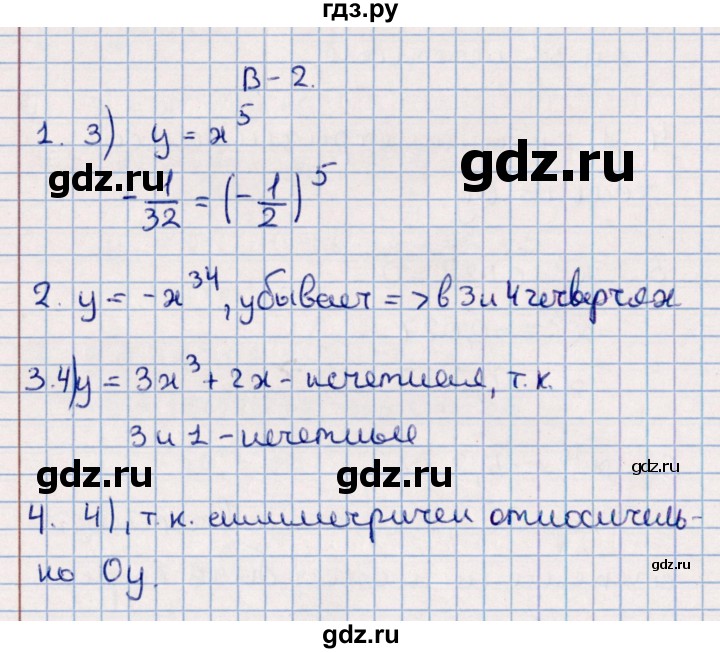 гдз.ру
В-2.
1. 3) y = x⁵
gdz.ru gdz.ru
-1/32 = (-1/2)⁵
2. y = -x³⁴, убывает => в 3 и 4 четвертях
3. 4) y = 3x³ + 2x - нечетная, т.к.
3 и 1 - нечетные
gdz.ru gdz.ru gdz.ru
4. 4), т.к. симметричен относитель-
но Оy.
gdz.ru
gdz.ru